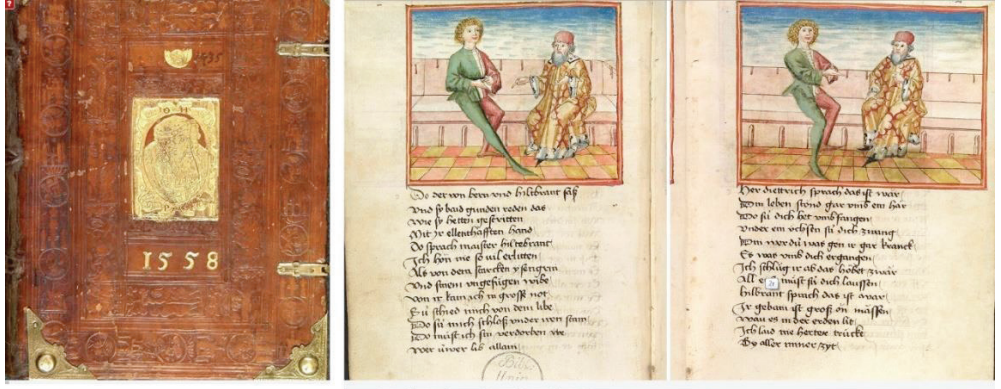 1558
Do der von bern vnd hiltbrant saß
Vnd sy baid gunden reden das
Wie sy hetten gestritten
Mit ir ellenthafften hand
Do sprach maister hiltebrant
Ich hon nie so vil erlitten
Als von dem starcken ysengrin
Vnd sinem vngefügen wibe
Von ir kam ich in grosse not
Sü schied mich von dem libe
Do sü mich schloß vnder
Do must ich sin verdorben
Wer üwer lib allain
Bibl
Univ
Her diettrich sprach das ist war
Din leben stönd gar vmb ein har
Do sü dich het vmbfangen
Vnder ein vchsen sü dich zwang
Din wer dü was gen ir gar kranck
Es was vmb dich ergangen
Ich schlüg ir ab das höbet zwar
All must sü dich laussen
Hilbrant sprach das ist war
Ir gebain ist groß on massen
Wau es in der erden lit
Ich laid nie herter trück
By aller miner zyt